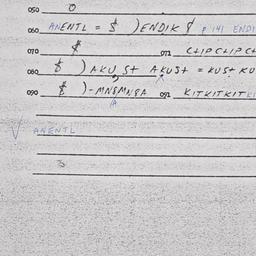 050 0
060 ANENTL = $ ) ENDIK $ P 141 ENDI
070 $ 072 CLIPCLIPCL
080 $ ) AKUSt AKUSt = KUSt KU
090 $ ) - MNSMNSA 092 KITKITKITKI
A
ANENTL
3